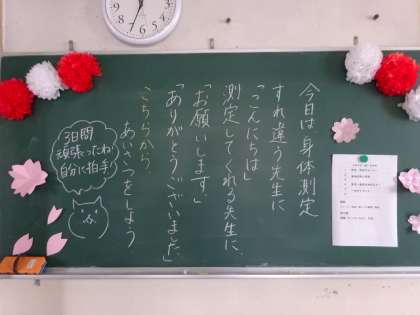 今日は身体測定
すれ違う先生に
「こんにちは」
測定してくれる先生に、
「お願いします」
「ありがとうございました」
こちらから
あいさつをしよう
3日間
頑張ったね!
自分に拍手!